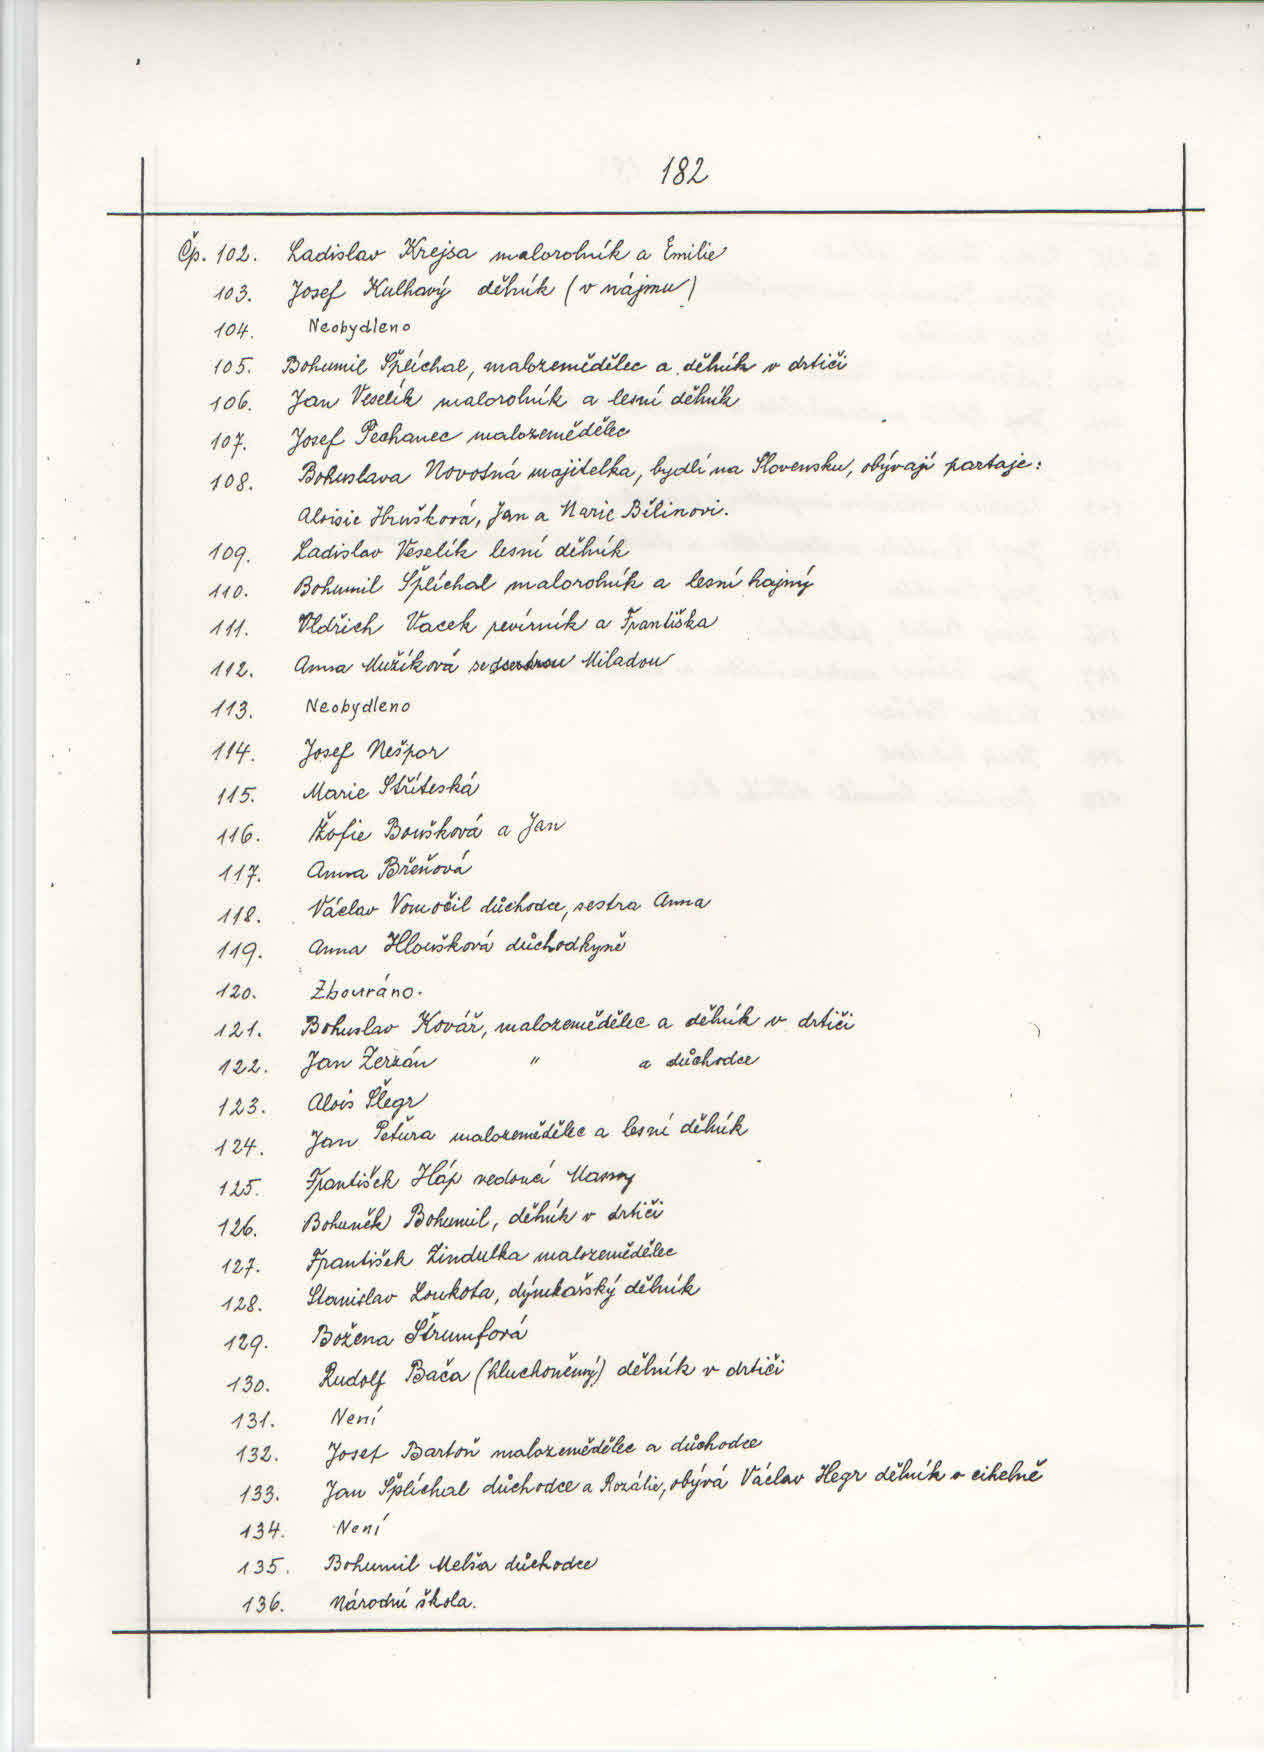 182
Čp. 102. Ladislav Krejsa malorolník a Emilie
103. Josef Kulhavý dělník (v nájmu)
104. Neobydleno
105. Bohumil Šplíchal, malozemědělec a dělník v drtiči
106. Jan Veselík malorolník a lesní dělník
107. Josef Pechanec malozemědělec
108. Bohuslava Novotná majitelka, bydlí na Slovensku, obývají partaje:
Aloisie Hrušková, Jan a Marie Bělinovi.
109. Ladislav Veselík lesní dělník
110. Bohumil Šplíchal malorolník a lesní hajný
111. Oldřich Vacek revírník a Františka
112. Anna Mužíková se sestrou Miladou
113. Neobydleno
114. Josef Nešpor
115. Marie Stříteská
116. Žofie Boušková a Jan
117. Anna Břeňová
118. Václav Vomočil důchodce, sestra Anna
119. Anna Hloušková důchodkyně
120. Zbouráno.
121. Bohuslav Kovář, malozemědělec a dělník v drtiči
122. Jan Zerzán " a důchodce
123. Alois Šlegr
124. Jan Petura malozemědělec a lesní dělník
125. František Háp vedoucí
126. Bohuněk Bohumil, dělník v drtiči
127. František Zindulka malozemědělec
128. Stanislav Loukota, dýmkařský dělník
129. Božena Štrumfová
130. Rudolf Bača (hluchoněmý) dělník v drtiči
131. Není
132. Josef Bartoň malozemědělec a důchodce
133. Jan Šplíchal důchodce a Rozálie, obývá Václav Hegr dělník v cihelně
134. Není
135. Bohumil Melša důchodce
136. Národní škola.